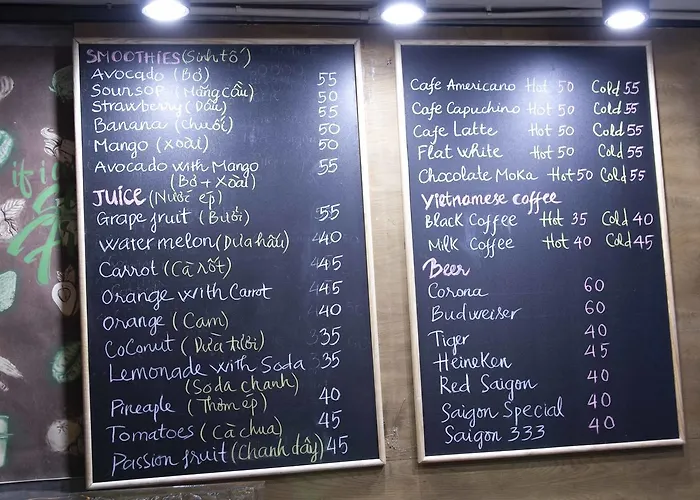 SMOOTHIES (Sinh tố)
Avocado (Bơ) 55
Soursop (Mãng Cầu) 50
Strawberry (Dâu) 55
Banana (chuối) 50
Mango (xoài) 50
Avocado with Mango 55
(Bơ + Xoài)
JUICE (Nước ép)
Grape fruit (Bưởi) 55
Watermelon (Dưa hấu) 40
Carrot (Cà rốt) 45
Orange with Carrot 45
Orange (Cam) 40
Coconut (Dừa tươi) 35
Lemonade with Soda 35
(Soda chanh)
Pineaple (Thơm ép) 40
Tomatoes (Cà chua) 45
Passion fruit (Chanh dây) 45
Cafe Americano Hot 50 Cold 55
Cafe Capuchino Hot 50 Cold 55
Cafe Latte Hot 50 Cold 55
Flat white Hot 50 Cold 55
Chocolate Moka Hot 50 Cold 55
Vietnamese coffee
Black Coffee Hot 35 Cold 40
Milk Coffee Hot 40 Cold 45
Beer
Corona 60
Budweiser 60
Tiger 40
Heineken 45
Red Saigon 40
Saigon Special 40
Saigon 333 40